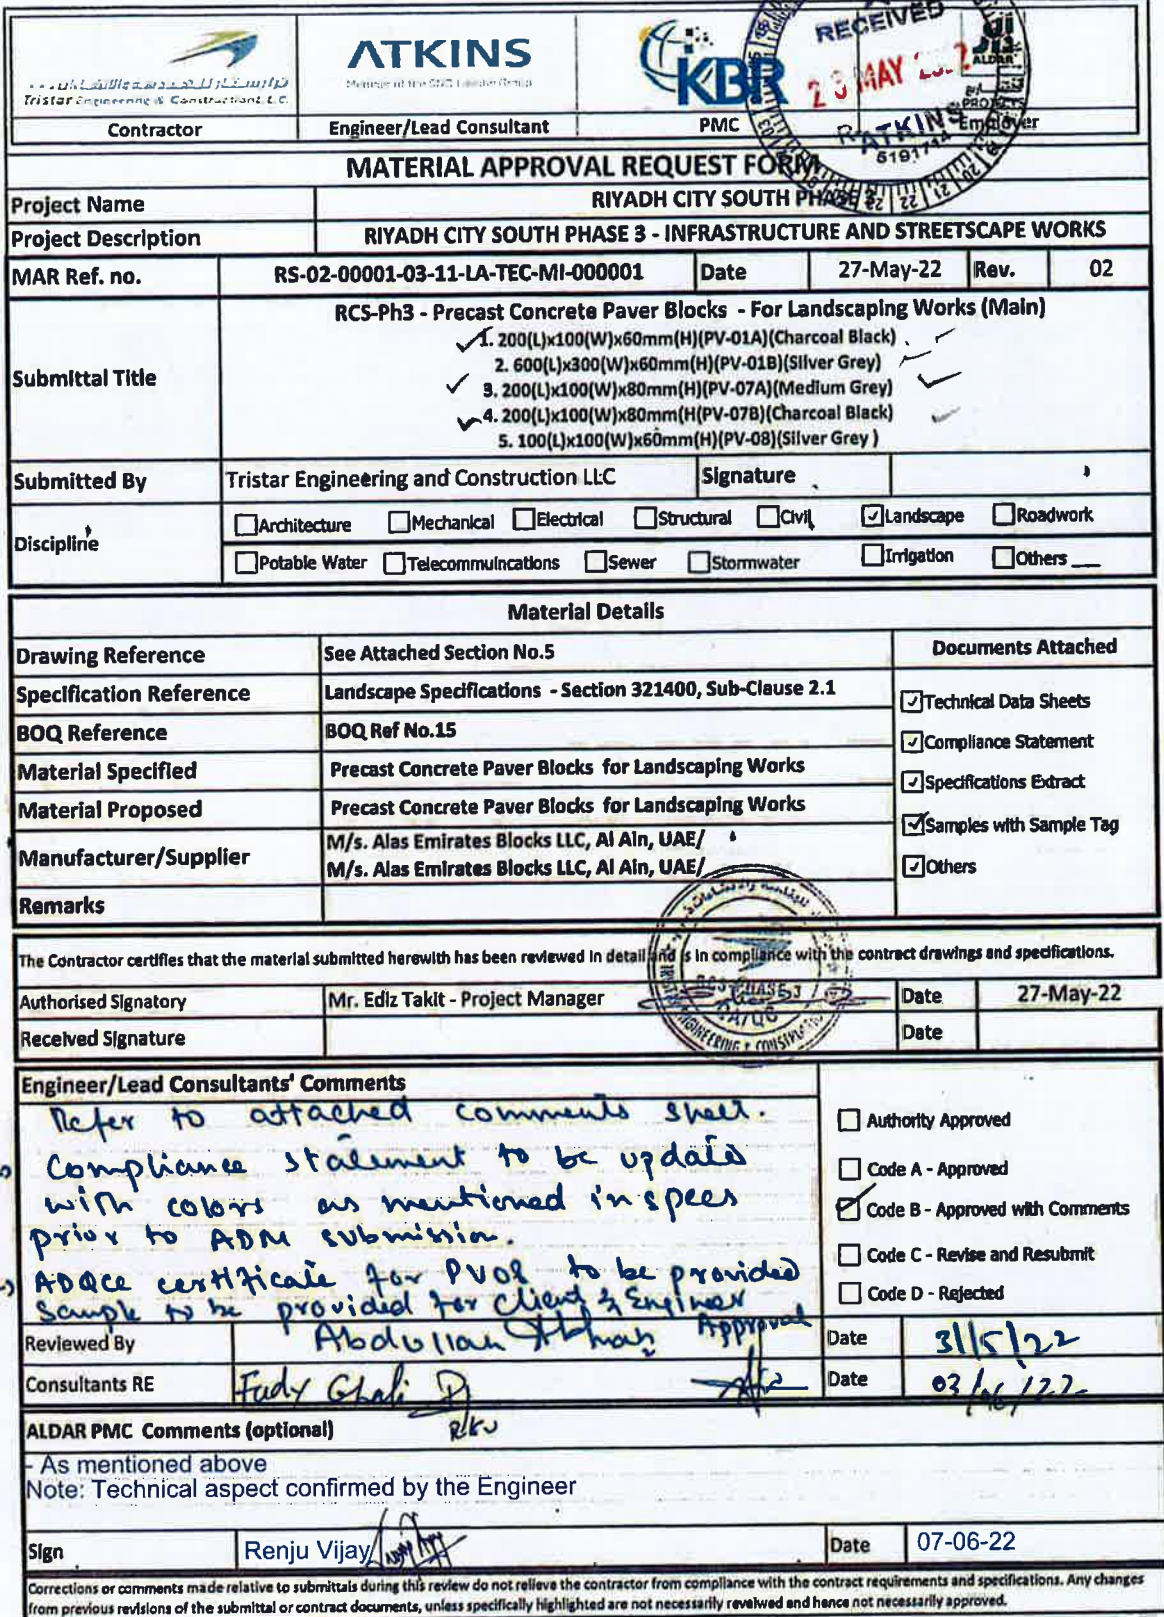 Tristar Engineering & Construction L.L.C.
ATKINS
Member of the SNC-Lavalin Group
KBR
RECEIVED
ALDAR
PROJECTS
ATKINS
Contractor
Engineer/Lead Consultant
PMC
Employer
MATERIAL APPROVAL REQUEST FORM
Project Name
RIYADH CITY SOUTH PHASE
Project Description
RIYADH CITY SOUTH PHASE 3 - INFRASTRUCTURE AND STREETSCAPE WORKS
MAR Ref. no.
RS-02-00001-03-11-LA-TEC-MI-000001
Date
27-May-22
Rev.
02
Submittal Title
RCS-Ph3 - Precast Concrete Paver Blocks - For Landscaping Works (Main)
1. 200(L)x100(W)x60mm(H)(PV-01A)(Charcoal Black)
2. 600(L)x300(W)x60mm(H)(PV-01B)(Silver Grey)
3. 200(L)x100(W)x80mm(H)(PV-07A)(Medium Grey)
4. 200(L)x100(W)x80mm(H(PV-07B)(Charcoal Black)
5. 100(L)x100(W)x60mm(H)(PV-08)(Silver Grey )
Submitted By
Tristar Engineering and Construction LLC
Signature
Discipline
Architecture Mechanical Electrical Structural Civil Landscape Roadwork
Potable Water Telecommuincations Sewer Stormwater Irrigation Others ___
Material Details
Drawing Reference
See Attached Section No.5
Documents Attached
Specification Reference
Landscape Specifications - Section 321400, Sub-Clause 2.1
Technical Data Sheets
BOQ Reference
BOQ Ref No.15
Compliance Statement
Material Specified
Precast Concrete Paver Blocks for Landscaping Works
Specifications Extract
Material Proposed
Precast Concrete Paver Blocks for Landscaping Works
Samples with Sample Tag
Manufacturer/Supplier
M/s. Alas Emirates Blocks LLC, Al Ain, UAE/
M/s. Alas Emirates Blocks LLC, Al Ain, UAE/
Others
Remarks
The Contractor certifies that the material submitted herewith has been reviewed in detail and is in compliance with the contract drawings and specifications.
Authorised Signatory
Mr. Ediz Takit - Project Manager
Date
27-May-22
Received Signature
Date
Engineer/Lead Consultants' Comments
Refer to attached comments sheet.
Compliance statement to be update
with colors as mentioned in specs
prior to ADM submission.
ADQCC certificate for PV08 to be provided
Sample to be provided for Client & Engineer
Approval
Authority Approved
Code A - Approved
Code B - Approved with Comments
Code C - Revise and Resubmit
Code D - Rejected
Reviewed By
Abdullah
Date
31/5/22
Consultants RE
Fady Ghali
Date
03/06/22
ALDAR PMC Comments (optional)
- As mentioned above
Note: Technical aspect confirmed by the Engineer
Sign
Renju Vijay
Date
07-06-22
Corrections or comments made relative to submittals during this review do not relieve the contractor from compliance with the contract requirements and specifications. Any changes
from previous revisions of the submittal or contract documents, unless specifically highlighted are not necessarily reveiwed and hence not necessarily approved.